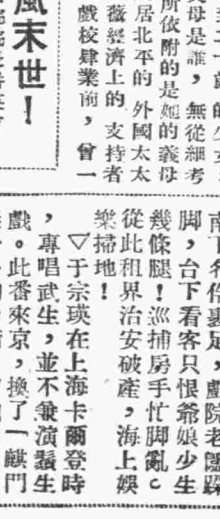 父母是誰，無從細考
所依附的是她的義母
居北平的外國太太
薇經濟上的支持者
戲校肄業前，曾一
風末世！
南下名伶裹足，戲院老闆跺
脚，台下看客只恨爺娘少生
幾條腿！巡捕房手忙脚亂。
從此租界治安破產，海上娛
樂掃地！
▽于宗瑛在上海卡爾登時
，專唱武生，並不兼演鬚生
戲。此番來京，換了一麒門